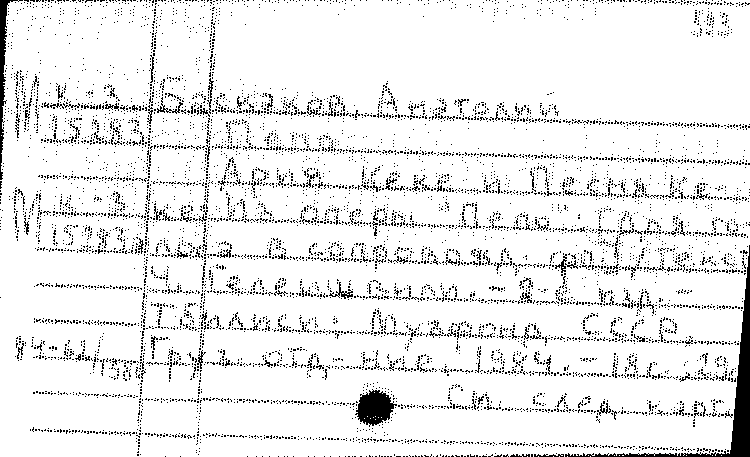 593
К-3 Баскаков, Анатолий
15283 Пепо
Ария Кеке и Песня Ке-
К-3 ке: Из оперы "Пепо". [Для го-
15283а лоса в сопровожд. ф-п] / Текст
Ч. Гелейшвили. - 2-е изд. -
Тбилиси: Музфонд СССР.
84-62/1384 Груз. отд-ние, 1984. - 18 с.; 29
См. след. карт.